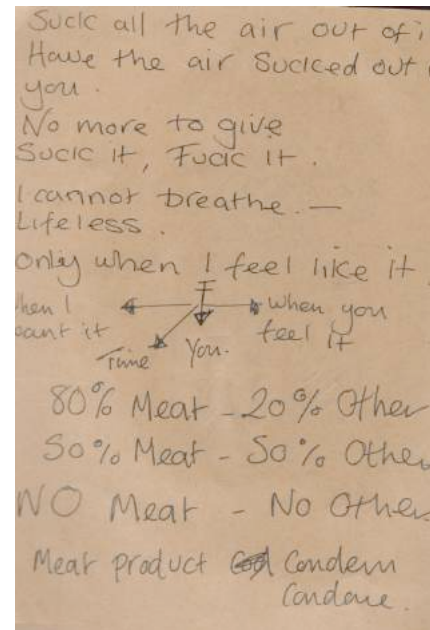 Suck all the air out of i
Have the air Sucked out
you.
No more to give
Suck it, Fuck it.
I cannot breathe. —
Lifeless.
Only when I feel like it
hen I
ant it
when you
feel it
Time
You.
80% Meat - 20% Other
50% Meat - 50% Other
NO Meat - No Other
Meat product Condem
Condone.